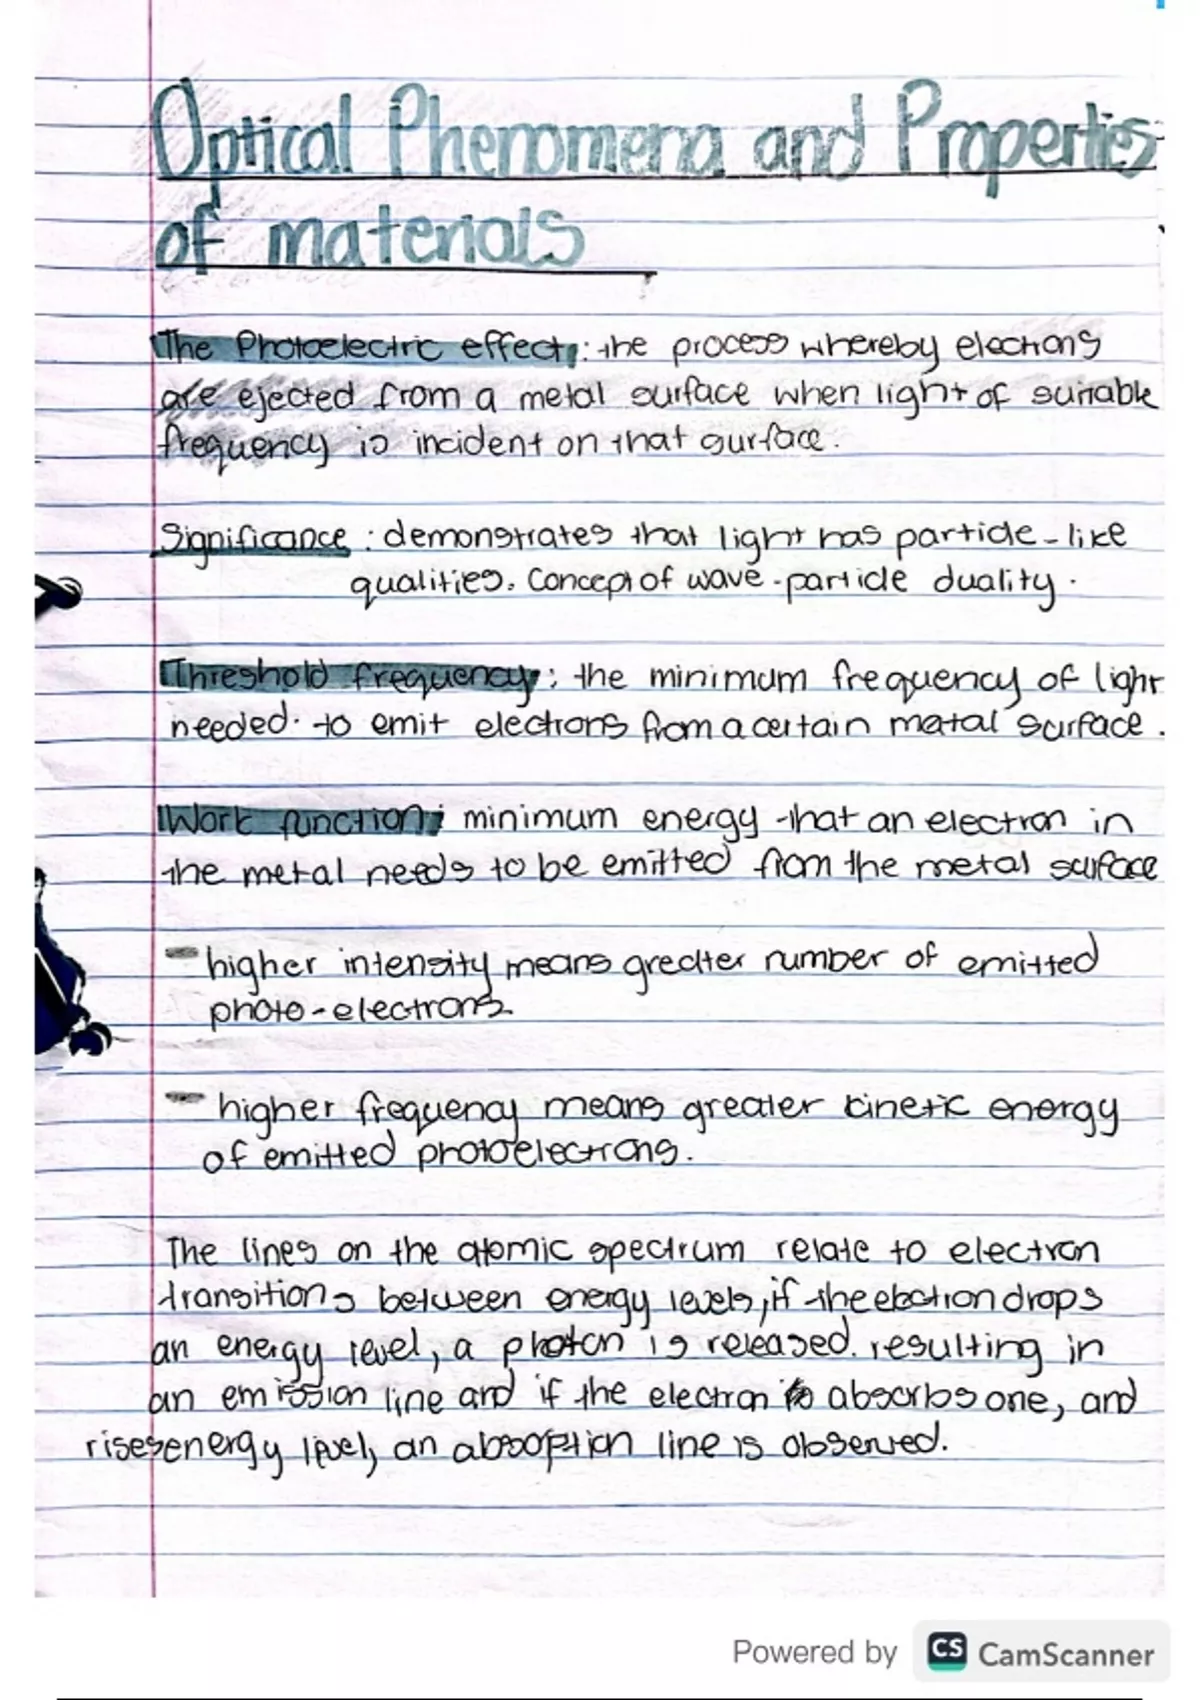 Optical Phenomena and Properties
of materials
The Photoelectric effect: the process whereby electrons
are ejected from a metal surface when light of suitable
frequency is incident on that surface.
Significance: demonstrates that light has particle-like
qualities. Concept of wave-particle duality.
Threshold frequency: the minimum frequency of light
needed to emit electrons from a certain metal surface.
Work function: minimum energy that an electron in
the metal needs to be emitted from the metal surface
- higher intensity means greater number of emitted
photo-electrons.
- higher frequency means greater kinetic energy
of emitted photoelectrons.
The lines on the atomic spectrum relate to electron
transitions between energy levels, if the electron drops
an energy level, a photon is released. resulting in
an emission line and if the electron absorbs one, and
rises energy level, an absorption line is observed.
Powered by CS CamScanner